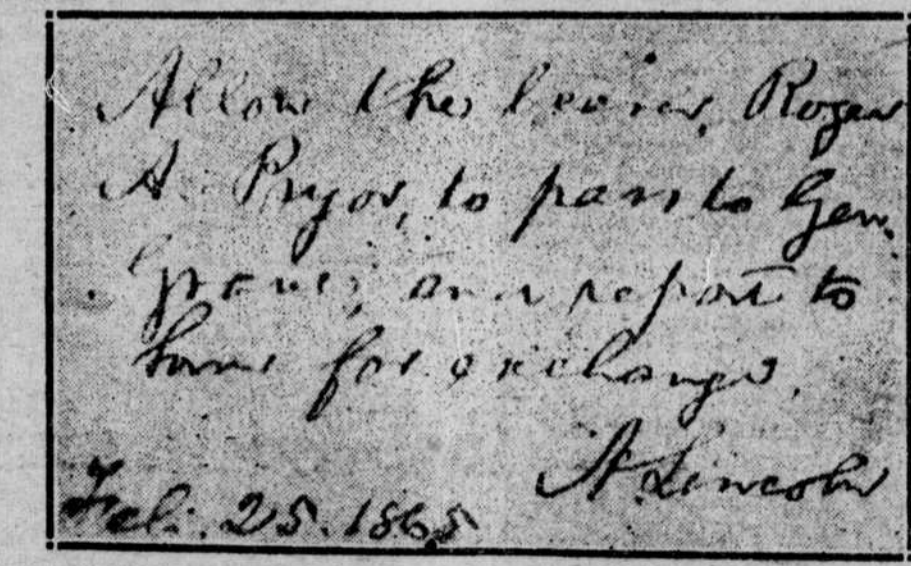 Allow the bearer, Roger
A. Pryor, to pass to Gen.
Grant, and report to
him for exchange.
A. Lincoln
Feb. 25. 1865